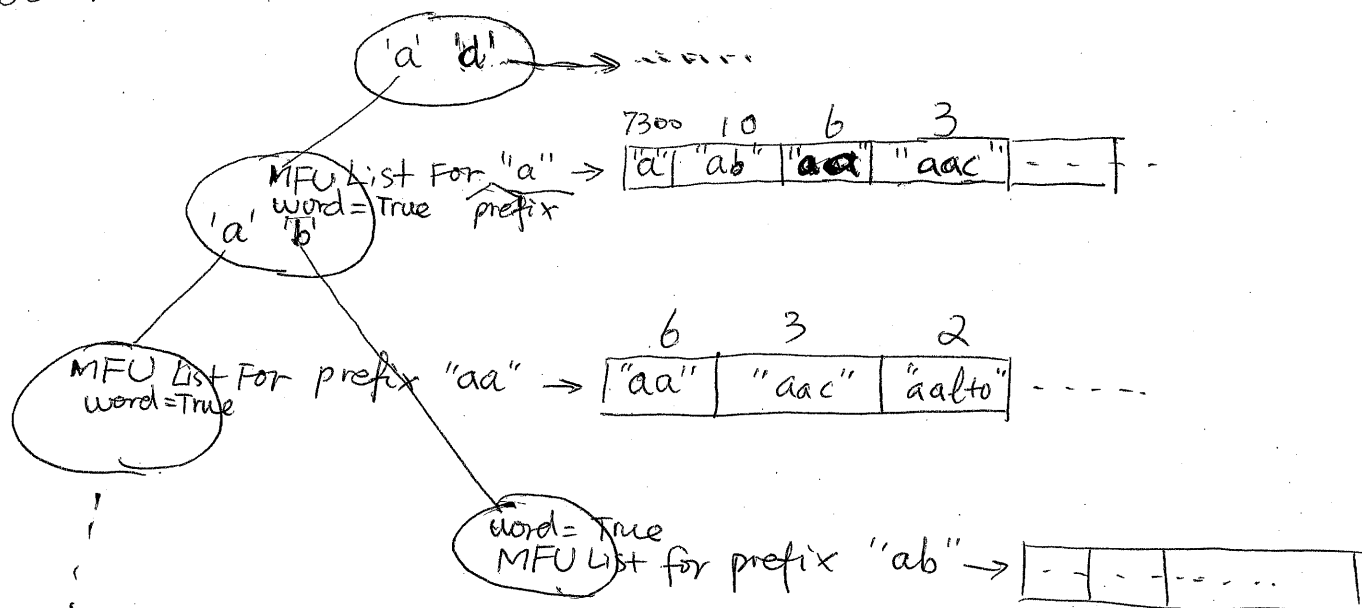 'a' 'd'
7300 10 6 3
MFU List For "a" → "a" "ab" "aa" "aac"
word=True prefix
'a' 'b'
6 3 2
MFU List For prefix "aa" → "aa" "aac" "aalto"
word=True
word= True
MFU List for prefix "ab" →